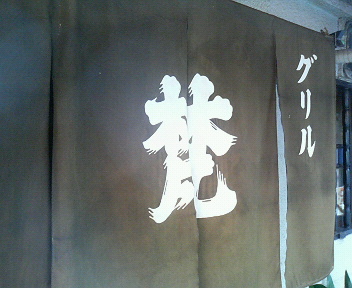 グリル
梵